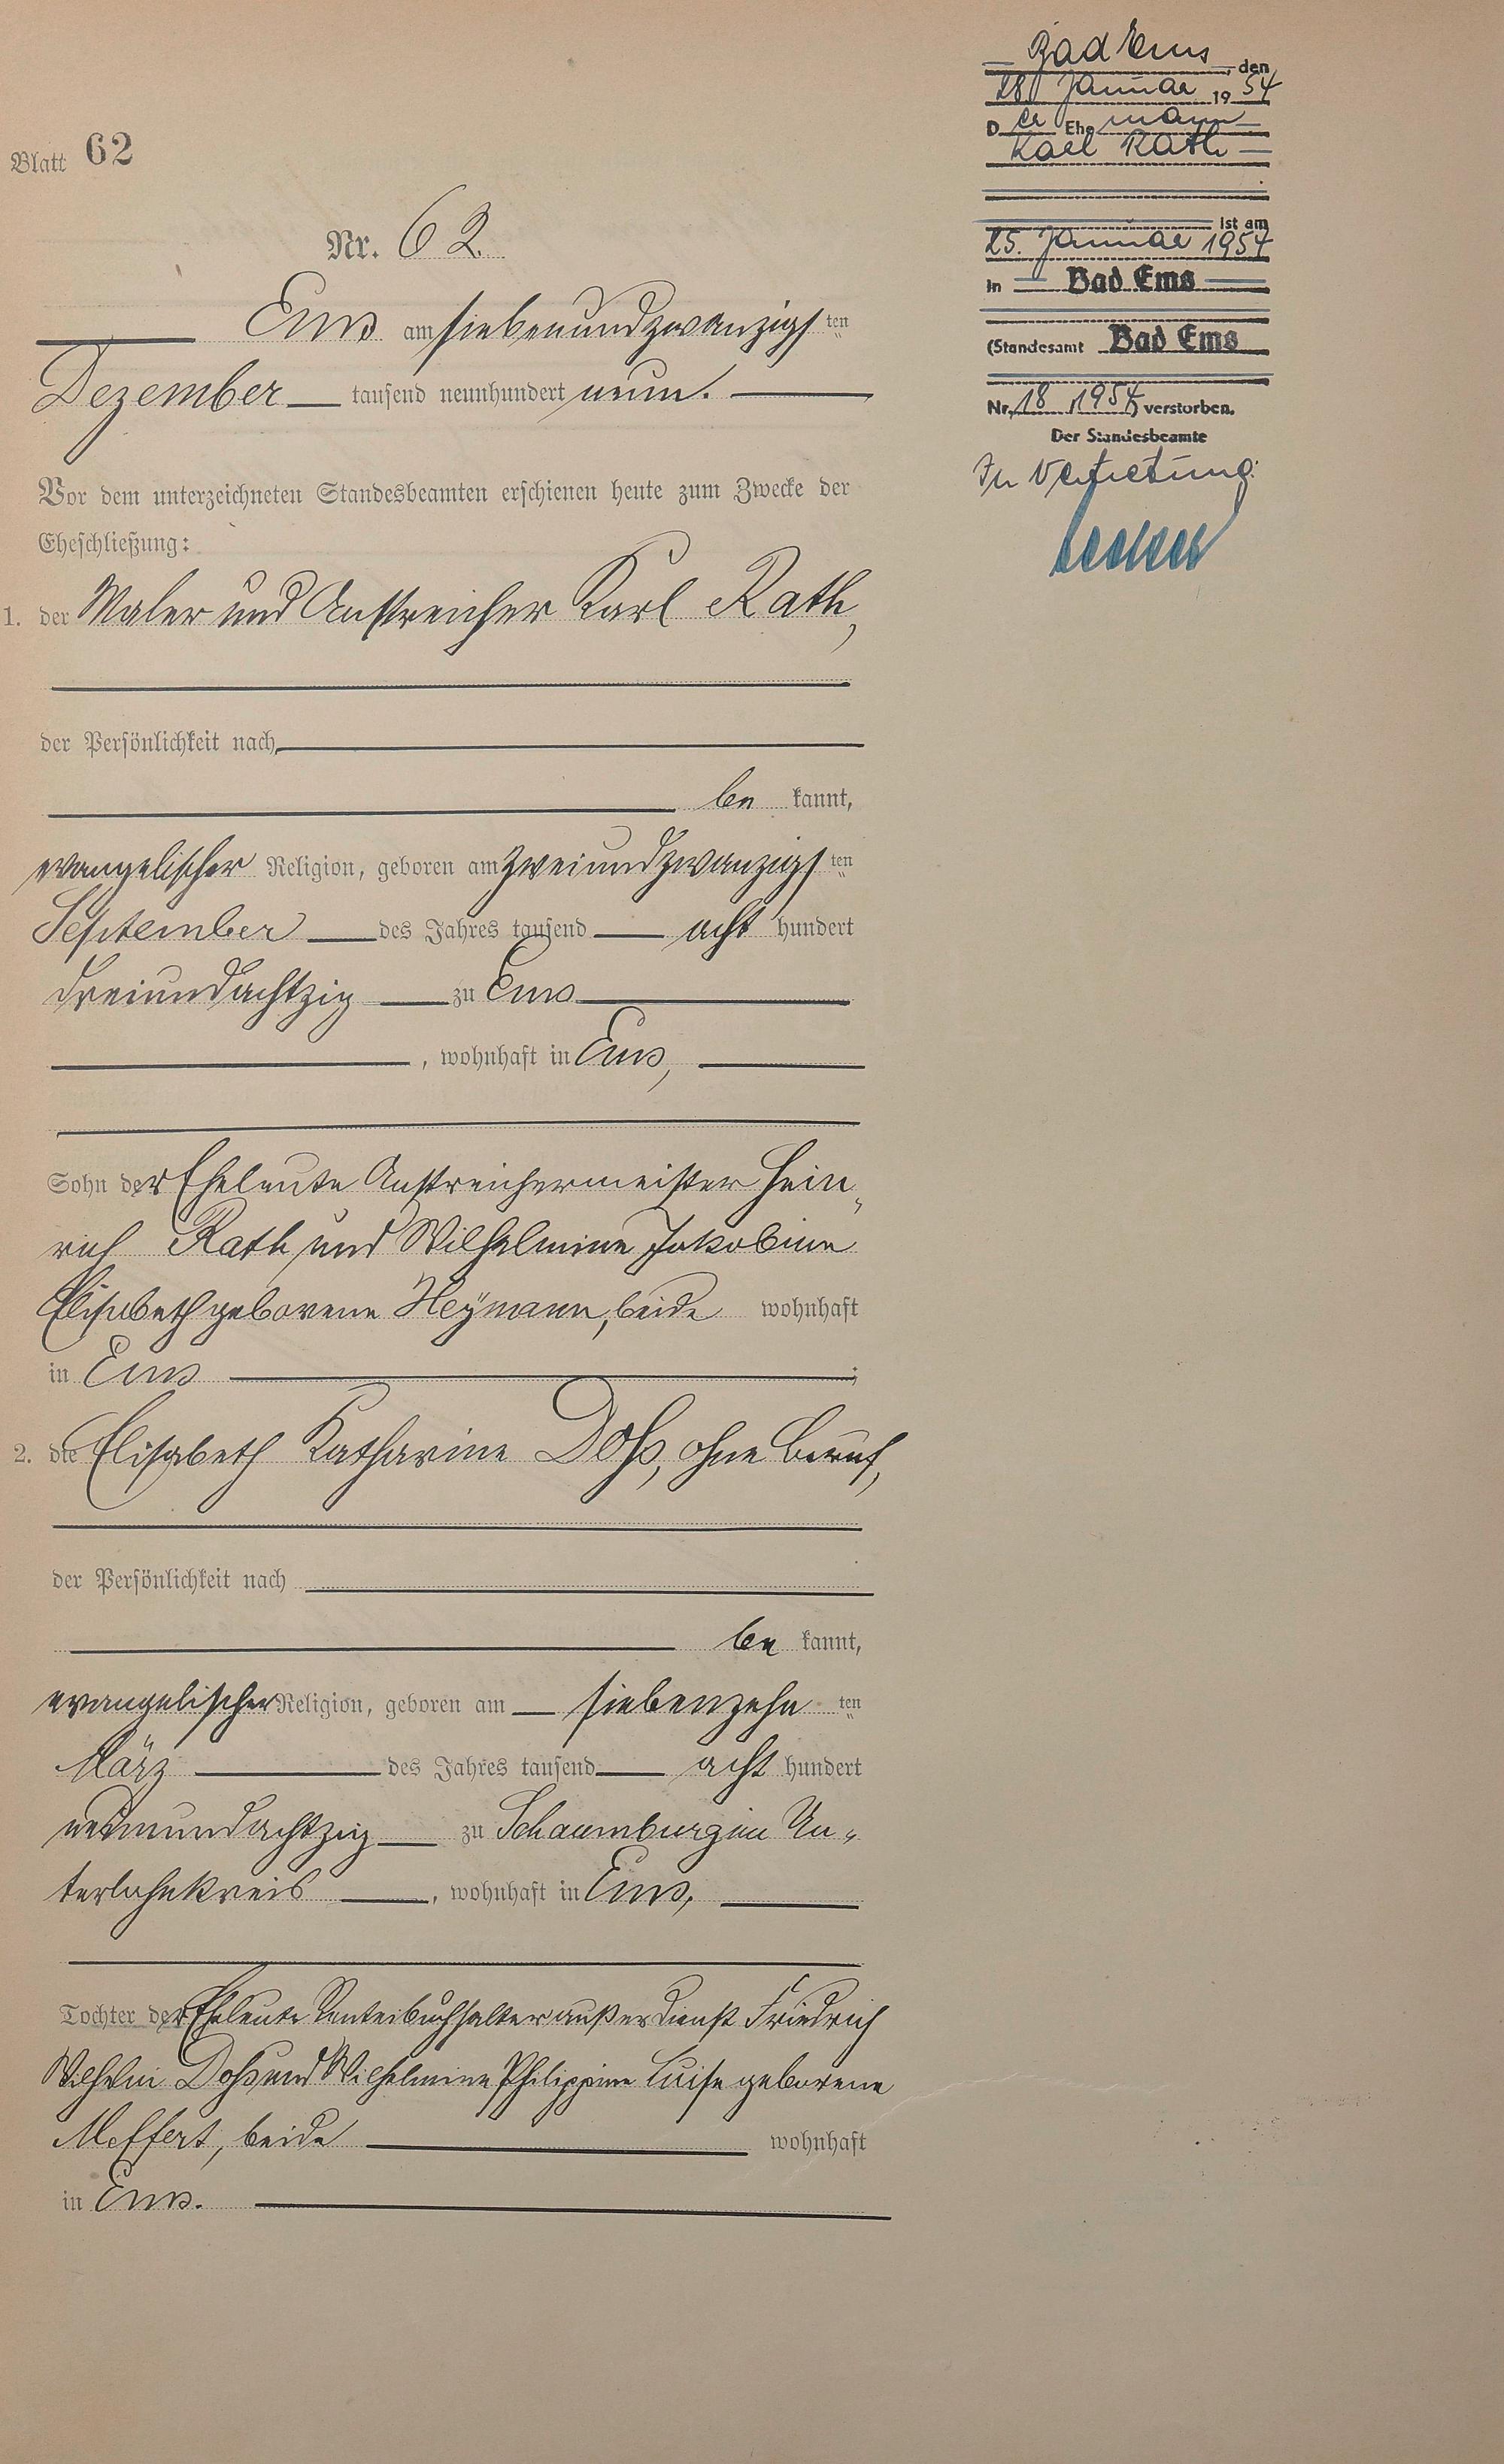 Blatt 62
Nr. 62.
Ems am siebenundzwanzigsten
Dezember tausend neunhundert neun.
Vor dem unterzeichneten Standesbeamten erschienen heute zum Zwecke der
Eheschließung:
1. der Maler und Anstreicher Karl Rath,
der Persönlichkeit nach
be kannt,
evangelischer Religion, geboren am zweiundzwanzigsten
September des Jahres tausend acht hundert
dreiundachtzig zu Ems
, wohnhaft in Ems,
Sohn der Eheleute Anstreichermeister Hein„
rich Rath und Wilhelmine Jakobine
Elisabeth geborene Heymann, beide wohnhaft
in Ems ;
2. die Elisabeth Katharine Döhs, ohne Beruf,
der Persönlichkeit nach
be kannt,
evangelischer Religion, geboren am siebenzehnten
März des Jahres tausend acht hundert
neunundachtzig zu Schaumburg im Un„
terlahnkreis , wohnhaft in Ems,
Tochter der Eheleute Renteibuchhalter außer Dienst Friedrich
Wilhelm und Wilhelmine Philippine Luise geborene
Meffert, beide wohnhaft
in Ems.
Bad Ems, den
28. Januar 1954
Der Ehemann
Karl Rath
ist am
25. Januar 1954
in Bad Ems
(Standesamt Bad Ems
Nr. 18/1954) verstorben.
Der Standesbeamte
In Vertretung: